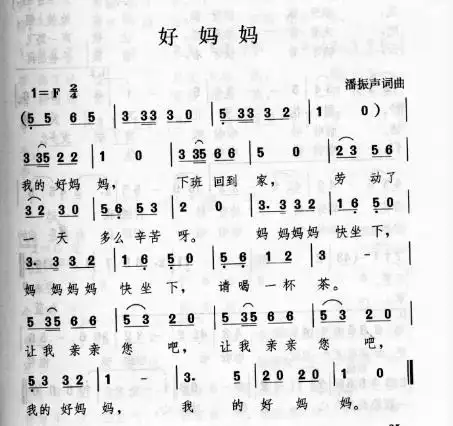 好妈妈
1=F 2/4
潘振声词曲
(5 5 6 5 | 3 33 3 0 | 5 33 3 2 | 1 0) |
3 35 2 2 | 1 0 | 3 35 6 6 | 5 0 | 2 3 5 6 |
我的 好妈 妈， 下班 回到 家， 劳 动了
3 2 3 0 | 5 6 5 3 | 2 0 | 3. 3 3 2 | 1 6 5 0 |
一 天 多么 辛苦 呀。 妈 妈妈妈 快坐 下，
3. 3 3 2 | 1 6 5 0 | 5 6 1 2 | 3 - |
妈 妈妈妈 快 坐 下， 请 喝 一 杯 茶。
5 35 6 6 | 5 3 2 0 | 5 35 6 6 | 5 3 2 0 |
让我 亲亲 您 吧， 让我 亲亲 您 吧，
5 3 3 2 | 1 - | 3. 5 | 2 0 2 0 | 1 0 ‖
我的 好妈 妈， 我 的 好 妈 妈。